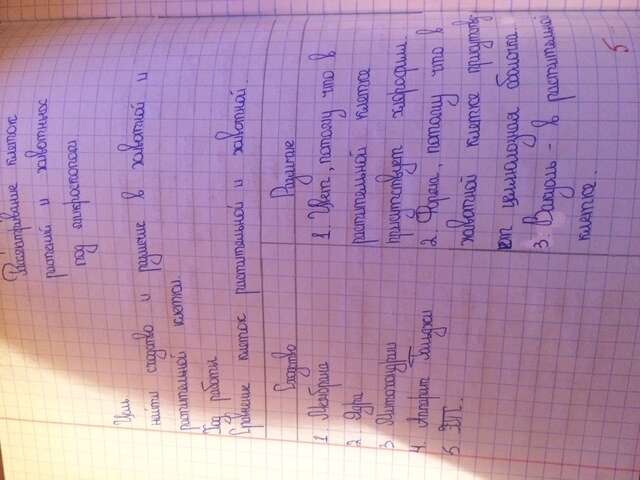 Рассматривание клеток
растений и животных
под микроскопом
Цель
найти сходство и различие в животной и
растительной клетки.
Ход работы
Сравнение клеток растительной и животной.
Сходство
1. Мембрана
2. Ядра
3. Митохондрии
4. Аппарат Гольджи
5. ЭП.
Различие
1. Цвет, потому что в
растительной клетке
присутствует хлорофилл.
2. Форма, потому что в
животной клетке присутству
ет целлюлозная оболочка.
3. Вакуоль - в растительной
клетке.
5